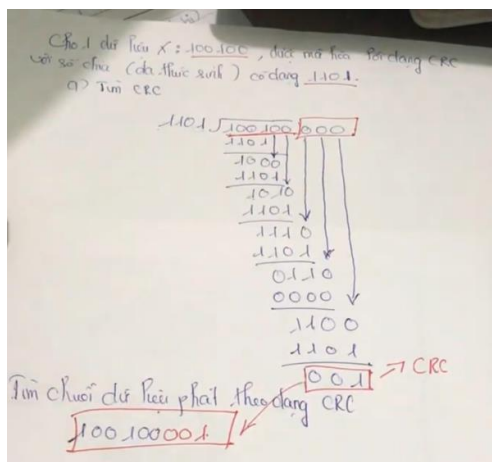 Cho 1 dữ liệu X: 100100, được mã hóa dạng CRC
với số chia (đa thức sinh) có dạng 1101.
a) Tìm CRC
1101 100100 000
1101
1000
1101
1010
1101
1110
1101
0110
0000
1100
1101
001 => CRC
Tìm chuỗi dữ liệu phát theo dạng CRC
100100001